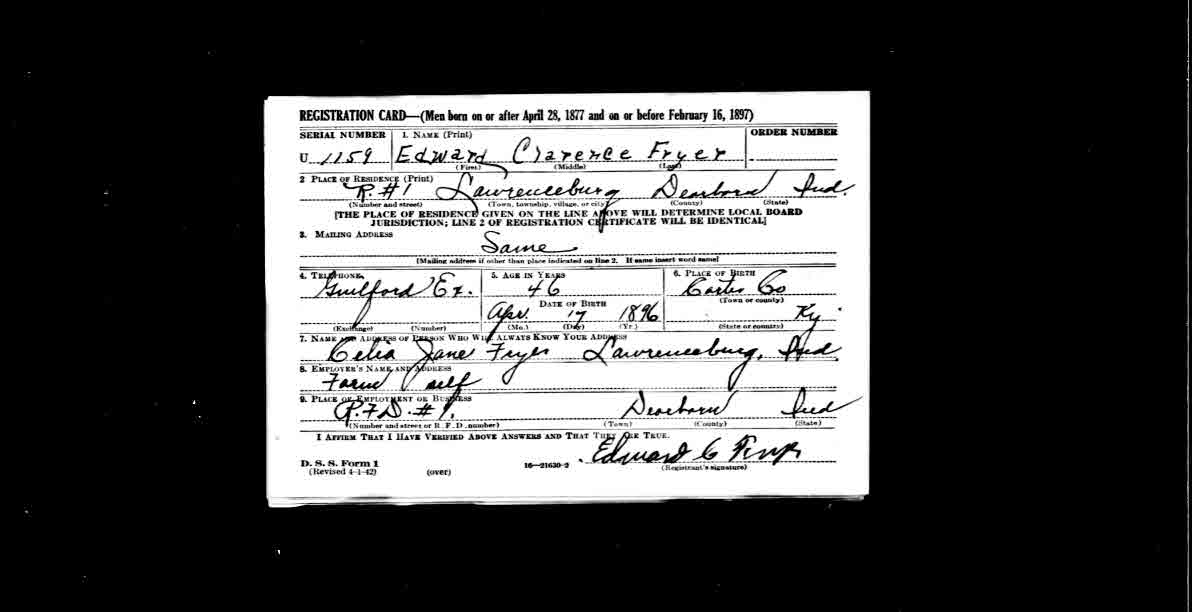 REGISTRATION CARD—(Men born on or after April 28, 1877 and on or before February 16, 1897)
SERIAL NUMBER 1. NAME (Print) ORDER NUMBER
U 1159 Edward Clarence Fryer
(First) (Middle) (Last)
2 PLACE OF RESIDENCE (Print)
R. #1 Lawrenceburg Dearborn Ind.
(Number and street) (Town, township, village, or city) (County) (State)
[THE PLACE OF RESIDENCE GIVEN ON THE LINE ABOVE WILL DETERMINE LOCAL BOARD
JURISDICTION; LINE 2 OF REGISTRATION CERTIFICATE WILL BE IDENTICAL]
3. MAILING ADDRESS
Same
[Mailing address if other than place indicated on line 2. If same insert word same]
4. TELEPHONE 5. AGE IN YEARS 6. PLACE OF BIRTH
Guilford Ex. 46 Carter Co
DATE OF BIRTH (Town or county)
Apr. 17 1896 Ky.
(Exchange) (Number) (Mo.) (Day) (Yr.) (State or country)
7. NAME AND ADDRESS OF PERSON WHO WILL ALWAYS KNOW YOUR ADDRESS
Celia Jane Fryer Lawrenceburg, Ind.
8. EMPLOYER'S NAME AND ADDRESS
Farm self
9. PLACE OF EMPLOYMENT OR BUSINESS
R.F.D. #1. Dearborn Ind
(Number and street or R. F. D. number) (Town) (County) (State)
I AFFIRM THAT I HAVE VERIFIED ABOVE ANSWERS AND THAT THEY ARE TRUE.
Edward C Fryer
D. S. S. Form 1
(Revised 4-1-42) (over) 16—21630-2 (Registrant's signature)